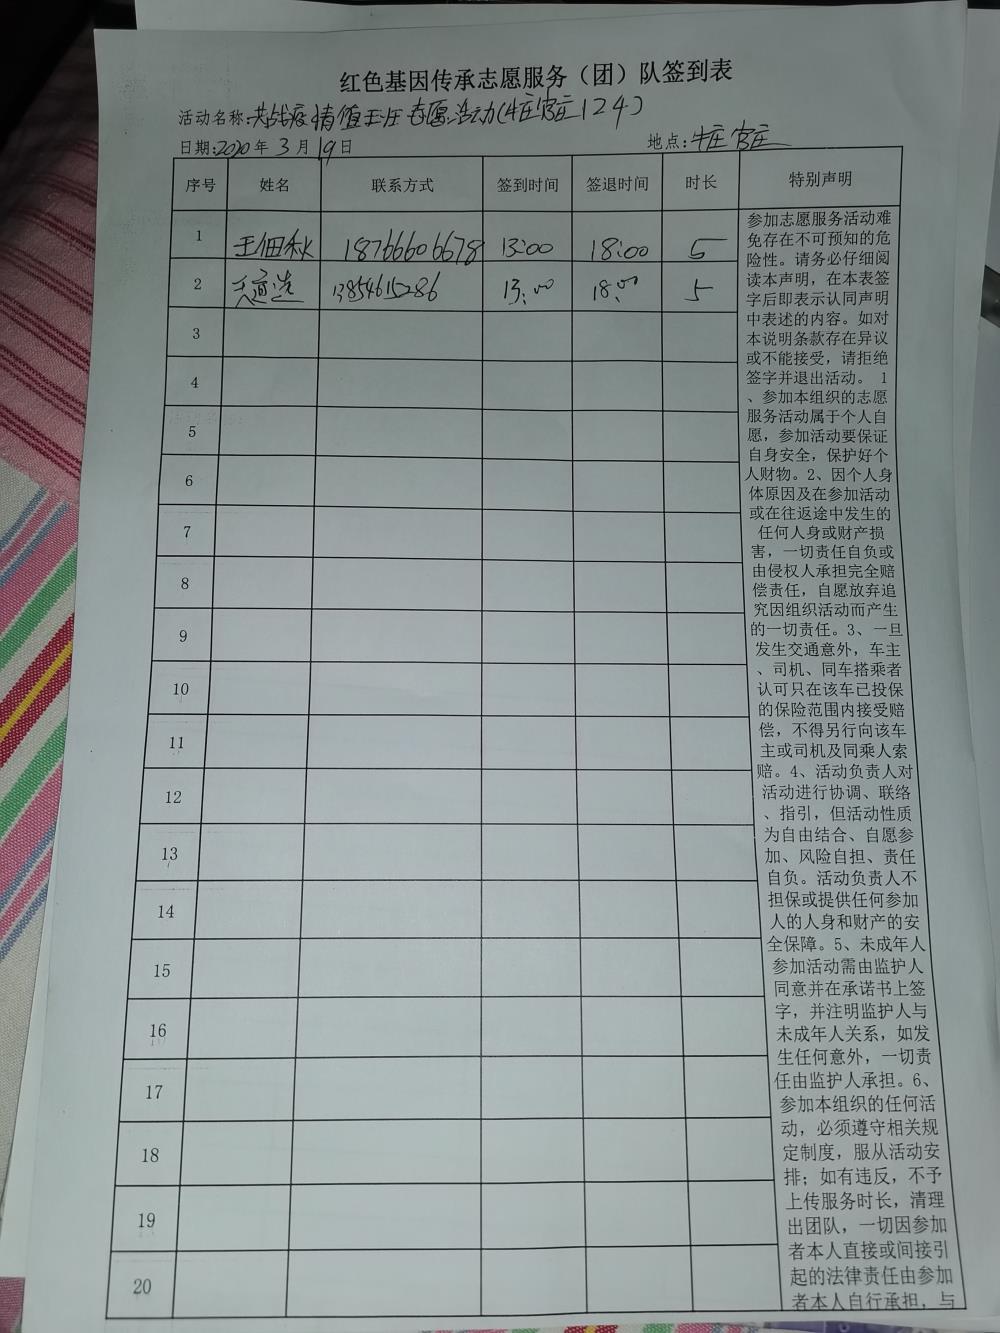 红色基因传承志愿服务（团）队签到表
活动名称:共战疫情值班 志愿活动(牛庄官庄124)
日期:2020年3月19日 地点:牛庄官庄
序号 姓名 联系方式 签到时间 签退时间 时长 特别声明
1 王佃秋 18766606678 13:00 18:00 5
2 13854615286 13:00 18:00 5
3
4
5
6
7
8
9
10
11
12
13
14
15
16
17
18
19
20
参加志愿服务活动难
免存在不可预知的危
险性。请务必仔细阅
读本声明，在本表签
字后即表示认同声明
中表述的内容。如对
本说明条款存在异议
或不能接受，请拒绝
签字并退出活动。 1
、参加本组织的志愿
服务活动属于个人自
愿，参加活动要保证
自身安全，保护好个
人财物。2、因个人身
体原因及在参加活动
或在往返途中发生的
任何人身或财产损
害，一切责任自负或
由侵权人承担完全赔
偿责任，自愿放弃追
究因组织活动而产生
的一切责任。3、一旦
发生交通意外，车主
、司机、同车搭乘者
认可只在该车已投保
的保险范围内接受赔
偿，不得另行向该车
主或司机及同乘人索
赔。4、活动负责人对
活动进行协调、联络
、指引，但活动性质
为自由结合、自愿参
加、风险自担、责任
自负。活动负责人不
担保或提供任何参加
人的人身和财产的安
全保障。5、未成年人
参加活动需由监护人
同意并在承诺书上签
字，并注明监护人与
未成年人关系，如发
生任何意外，一切责
任由监护人承担。6、
参加本组织的任何活
动，必须遵守相关规
定制度，服从活动安
排；如有违反，不予
上传服务时长，清理
出团队，一切因参加
者本人直接或间接引
起的法律责任由参加
者本人自行承担，与